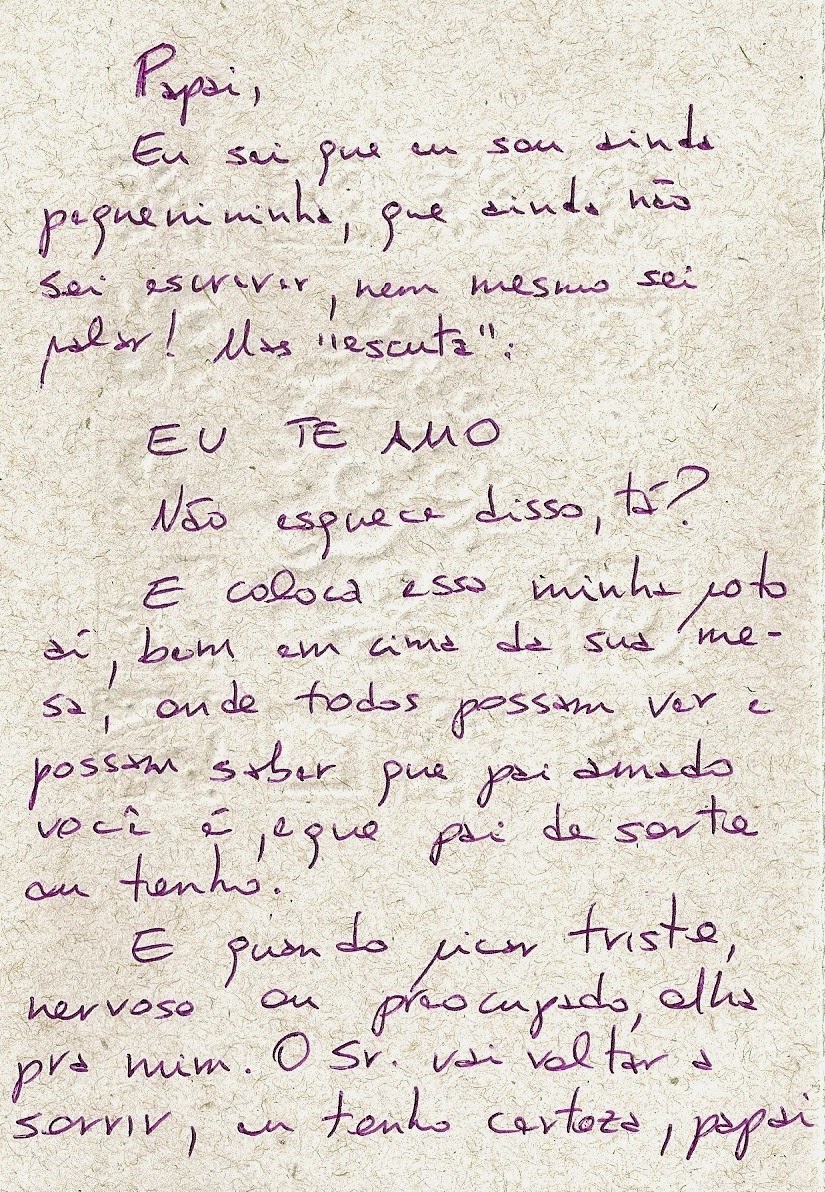 Papai,
Eu sei que eu sou ainda
pequenininha, que ainda não
sei escrever, nem mesmo sei
falar! Mas "escuta":
EU TE AMO
Não esquece disso, tá?
E coloca essa minha foto
aí, bem em cima da sua me-
sa, onde todos possam ver e
possam saber que pai amado
você é, e que pai de sorte
eu tenho.
E quando ficar triste,
nervoso ou preocupado, olha
pra mim. O Sr. vai voltar a
sorrir, eu tenho certeza, papai